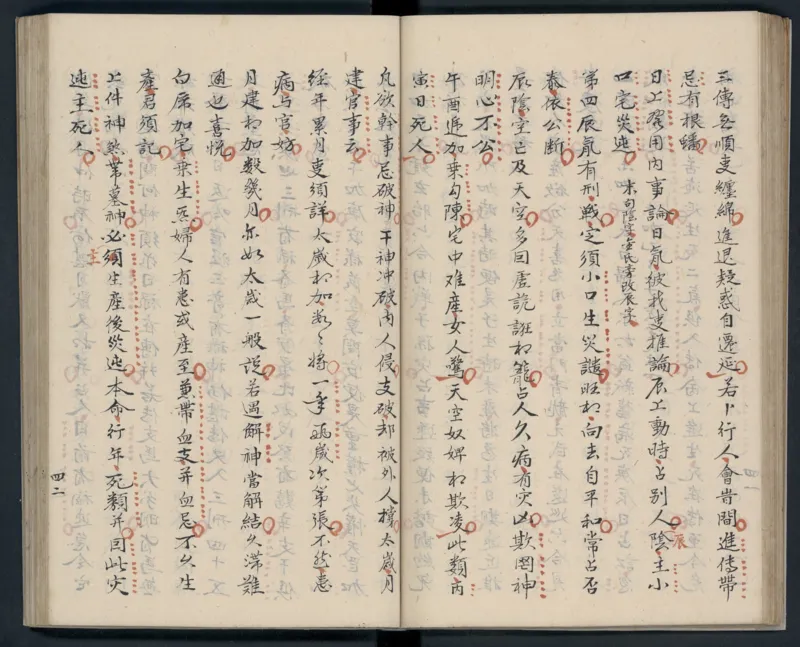 三傳兮順支纏綿進退疑惑自遷延若卜行人會當間進傳帶
忌有根蟠
日上發用內事論日氣彼我支推論辰上動時占別人陰主小
口宅災迍
第四辰氣有刑戰定須小口生災譴旺相向去自平和常占否
泰依公斷
辰陰空亡及天空多因虛詭誑相籠占人久病有災凶欺罔神
明心不公
午酉遞加乘勾陳宅中难產女人驚天空奴婢相欺凌此類丙
寅日死人
凡欲幹事忌破神干神冲破內人侵支破却被外人擾太歲月
建官事云
經年累月支須詳太歲相加數將一季
病与官妨
月建相加數幾月亦如太歲一般說若遇解神當解結久滯難
通也喜悅
白虎加宅乘生炁婦人有患或產至兼帶血支并血忌不久生
產君須記
上件神煞帶墓神必須生產後災迍本命行年死類并因此灾
迍主死人
四二